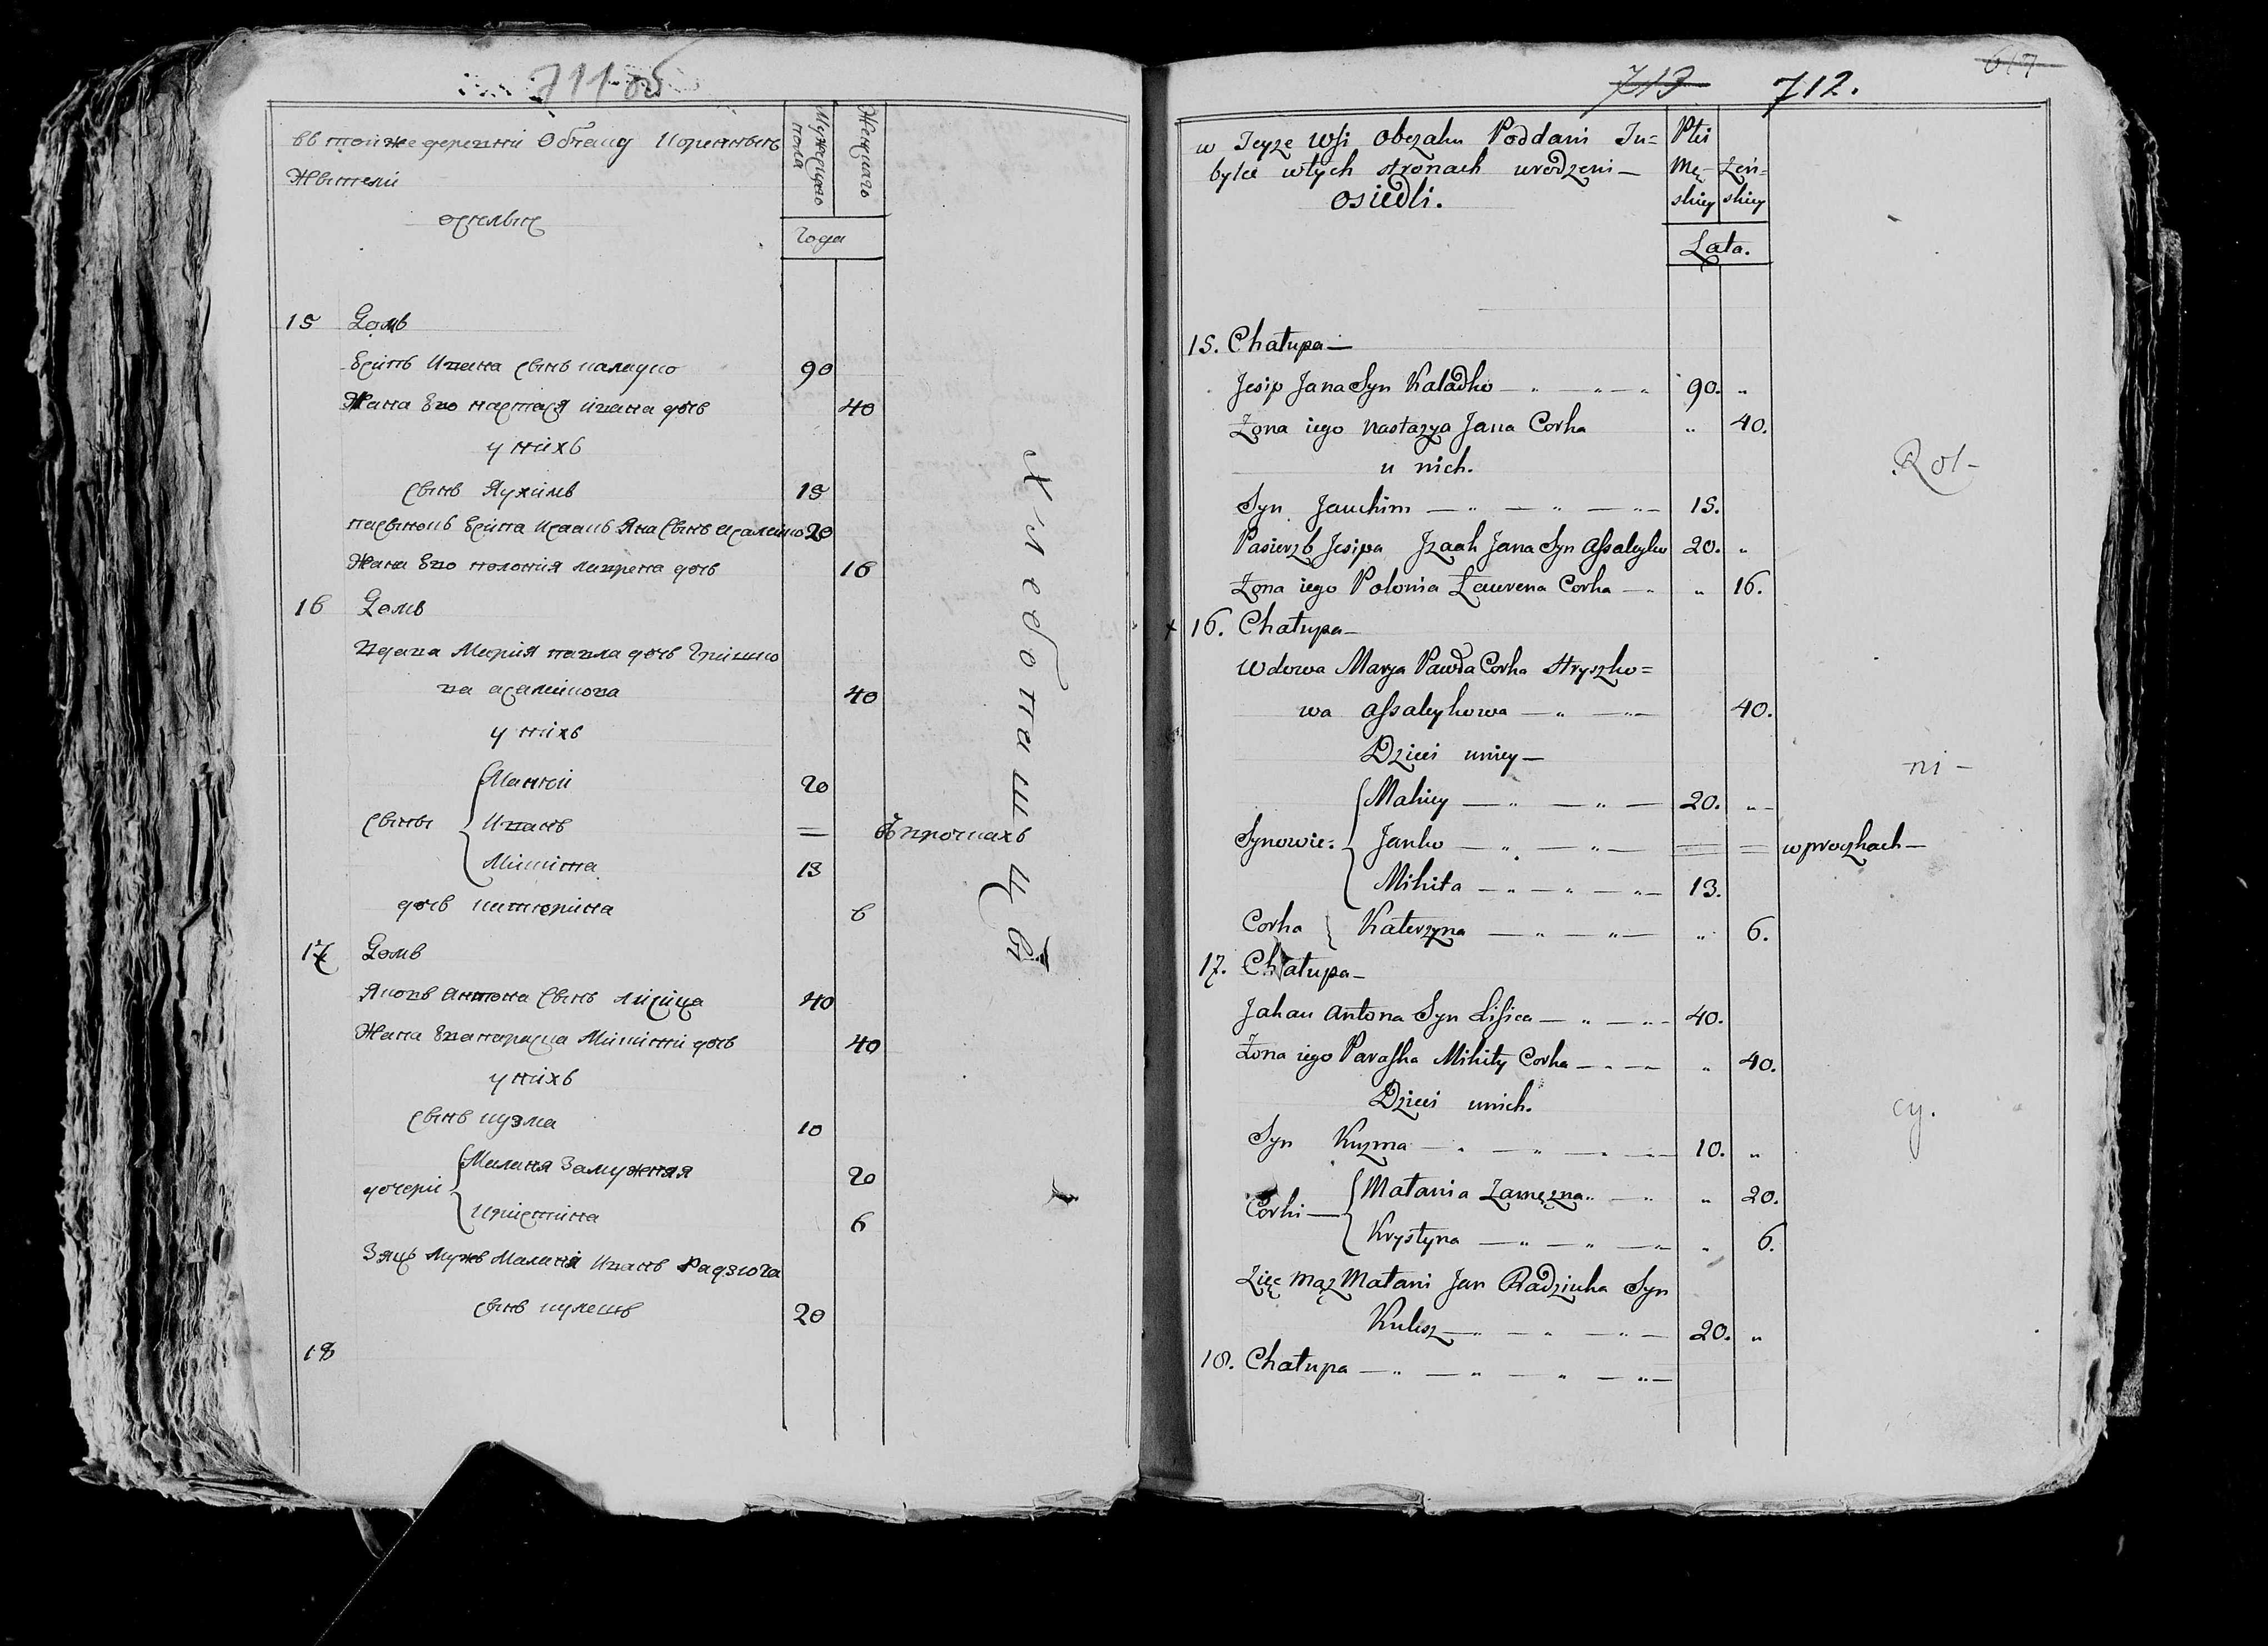 711 об
въ тойже деревни Обчаку Коренныъ
Жители
оселыъ
Мужескаго
пола
Женскаго
года
15 Домъ
Есипъ Ивана сынъ каладко 90
Жена Его настася ивана дочь 40
у нихъ
сынъ Яухимъ 15
пасынокъ Есипа исаакъ Яна сынъ асалейко 20
Жена Его полонія лаврена дочь 16
16 Домъ
вдова Марія павла дочь Гришко
ва асалейкова 40
у нихъ
сыны
Макей 20
Иванъ = въ прочкахъ
Микита 13
дочь катерина 6
17 Домъ
Яковъ антона сынъ лисица 40
Жена Ева параска Микити дочь 40
у нихъ
сынъ кузма 10
дочери
Маланя Замужняя 20
кристина 6
Зяць Мужъ Малани Иванъ Радзюка
сынъ кулешъ 20
18
Хлебопашцы
713 712.
617
w Teyze Wsi Obczaku Poddani Tu=
bylce wtych stronach urodzeni —
osiedli.
Płci
Mę- Żeń-
skiey skiey
Lata.
15. Chałupa —
Jesip Jana Syn Kaladko 90. "
Żona iego Nastazya Jana Corka " 40.
u nich.
Syn Jauchim 15.
Pasierzb Jesipa Jzaak Jana Syn Assaleyko 20. "
Żona iego Polonia Laurena Corka " 16.
x 16. Chałupa —
Wdowa Marya Pawła Corka Hryszko=
wa Assaleykowa 40.
Dzieci uniey —
Synowie:
Makiey 20. "
Janko = = wproczkach —
Mikita 13.
Corka Katerzyna " 6.
17. Chałupa —
Jakau Antona Syn Lisica 40.
Żona iego Paraska Mikity Corka " 40.
Dzieci unich.
Syn Kuzma 10. "
Corki —
Małania Zamężna " 20.
Krystyna " 6.
Zięc mąz Małani Jan Radziuka Syn
Kulesz 20. "
18. Chałupa
Rol-
ni -
cy.